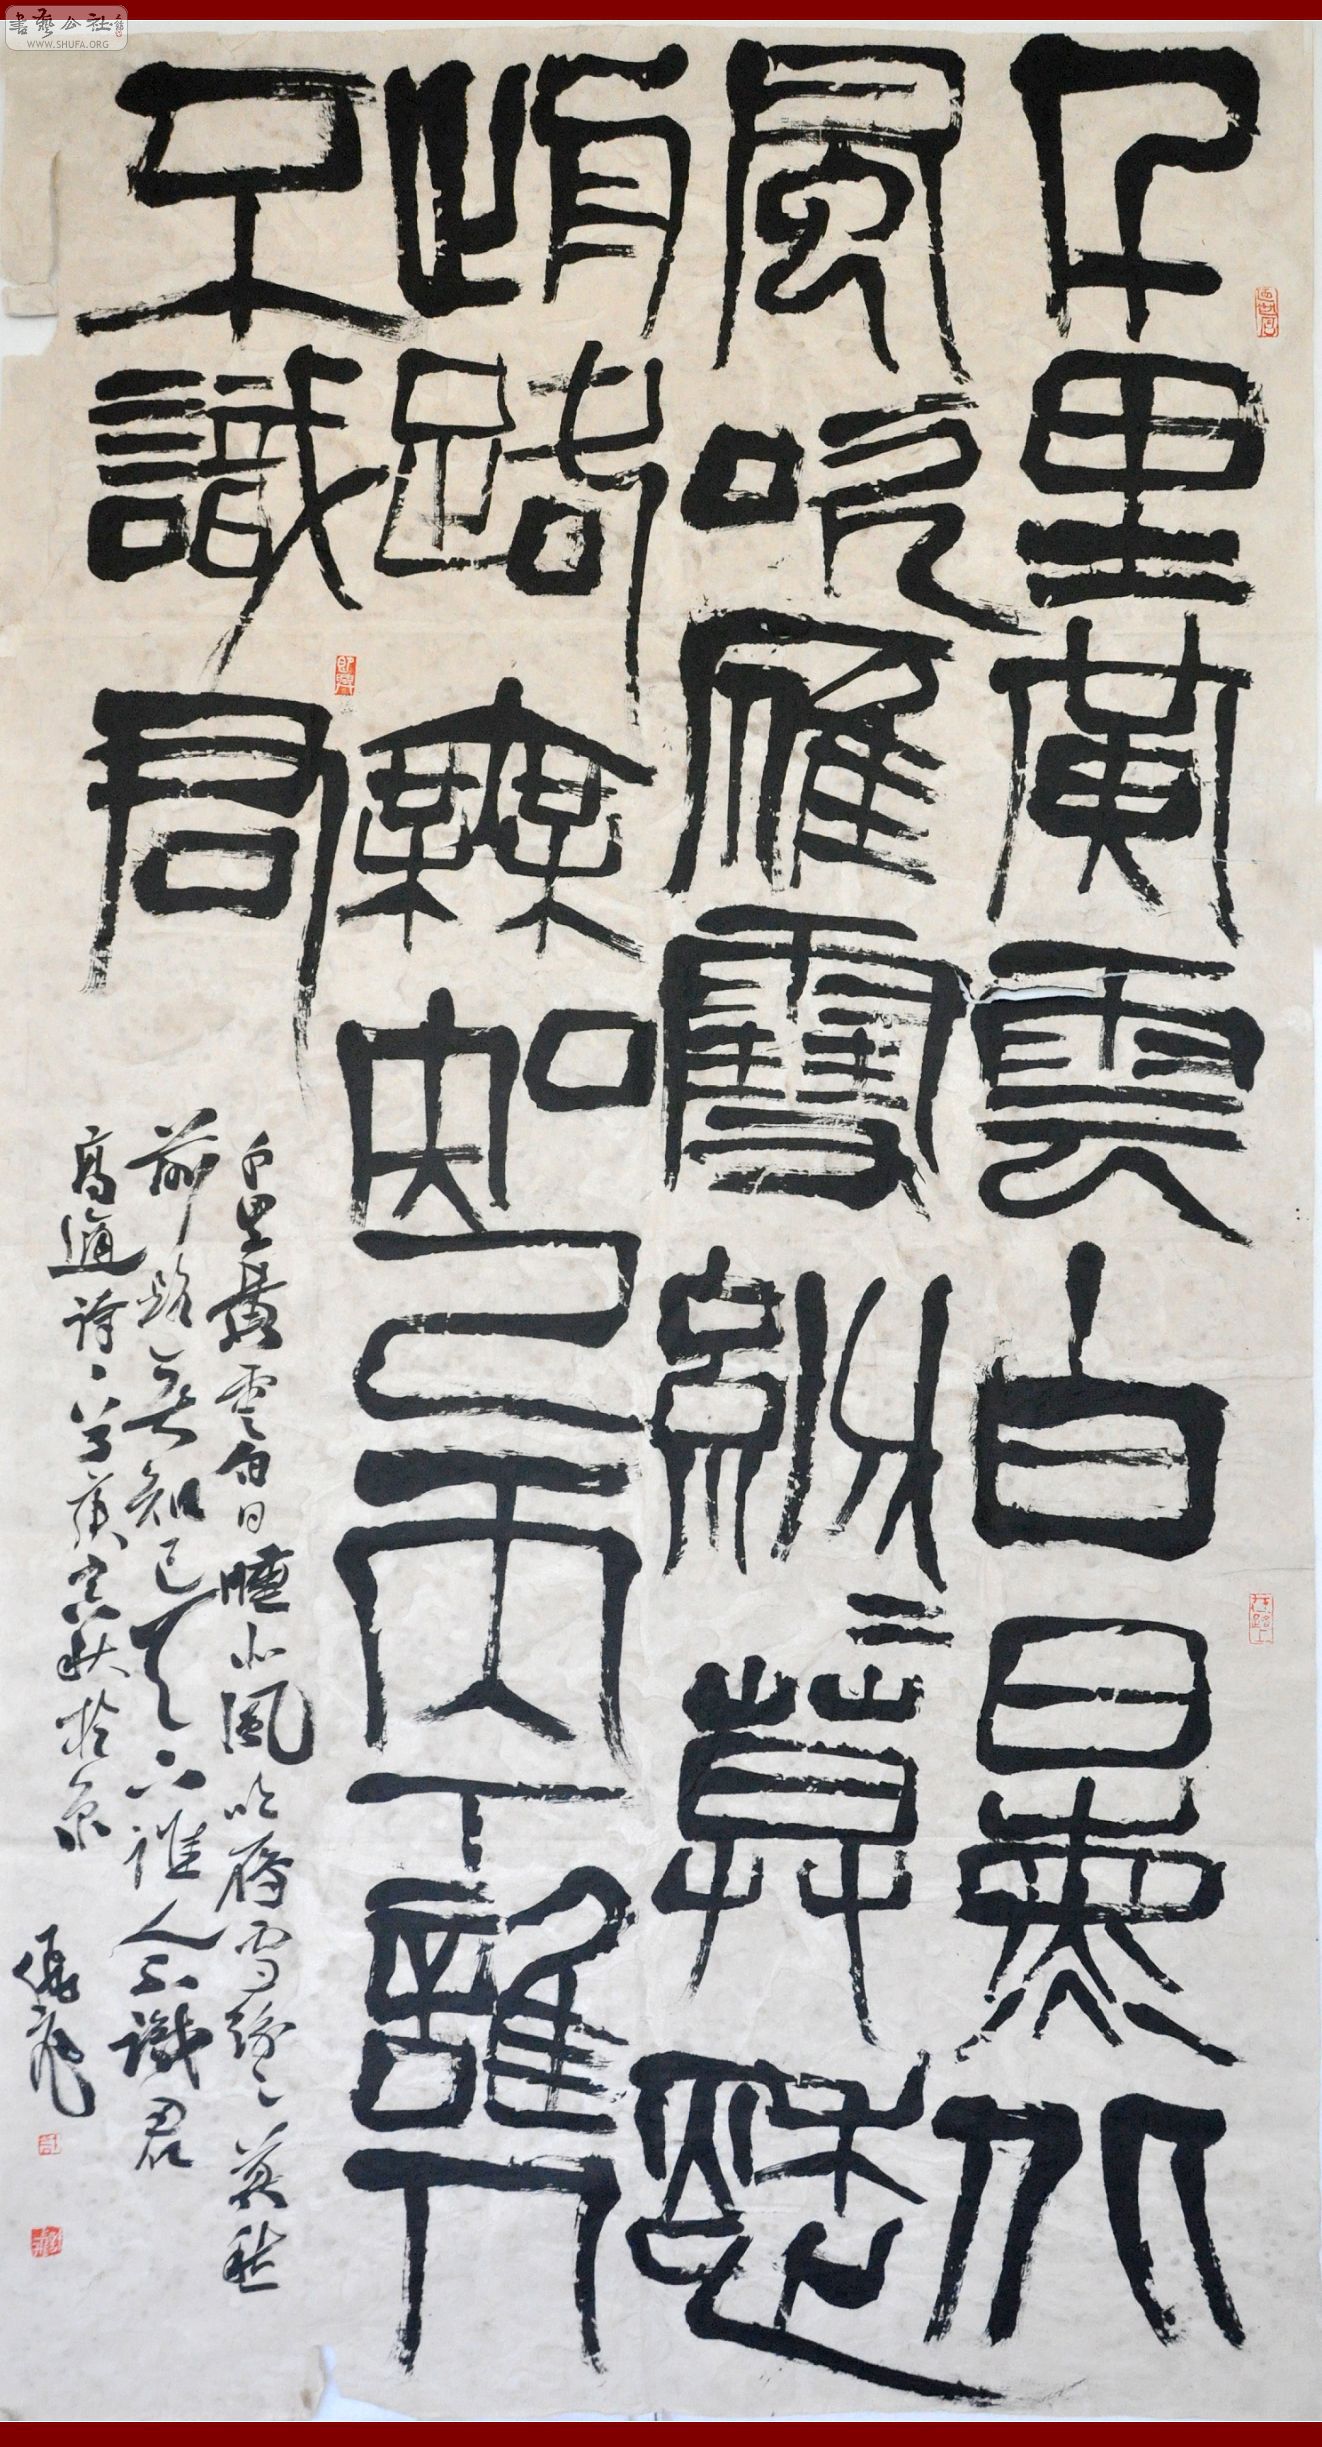 書藝公社
WWW.SHUFA.ORG
千里黃雲白日熏北
風吹雁雪紛〻莫愁
前路無知己天下誰人
不識君
千里黃雲白日曛北風吹雁雪紛〻莫愁
前路無知己天下誰人不識君
高適詩一首庚寅秋於京